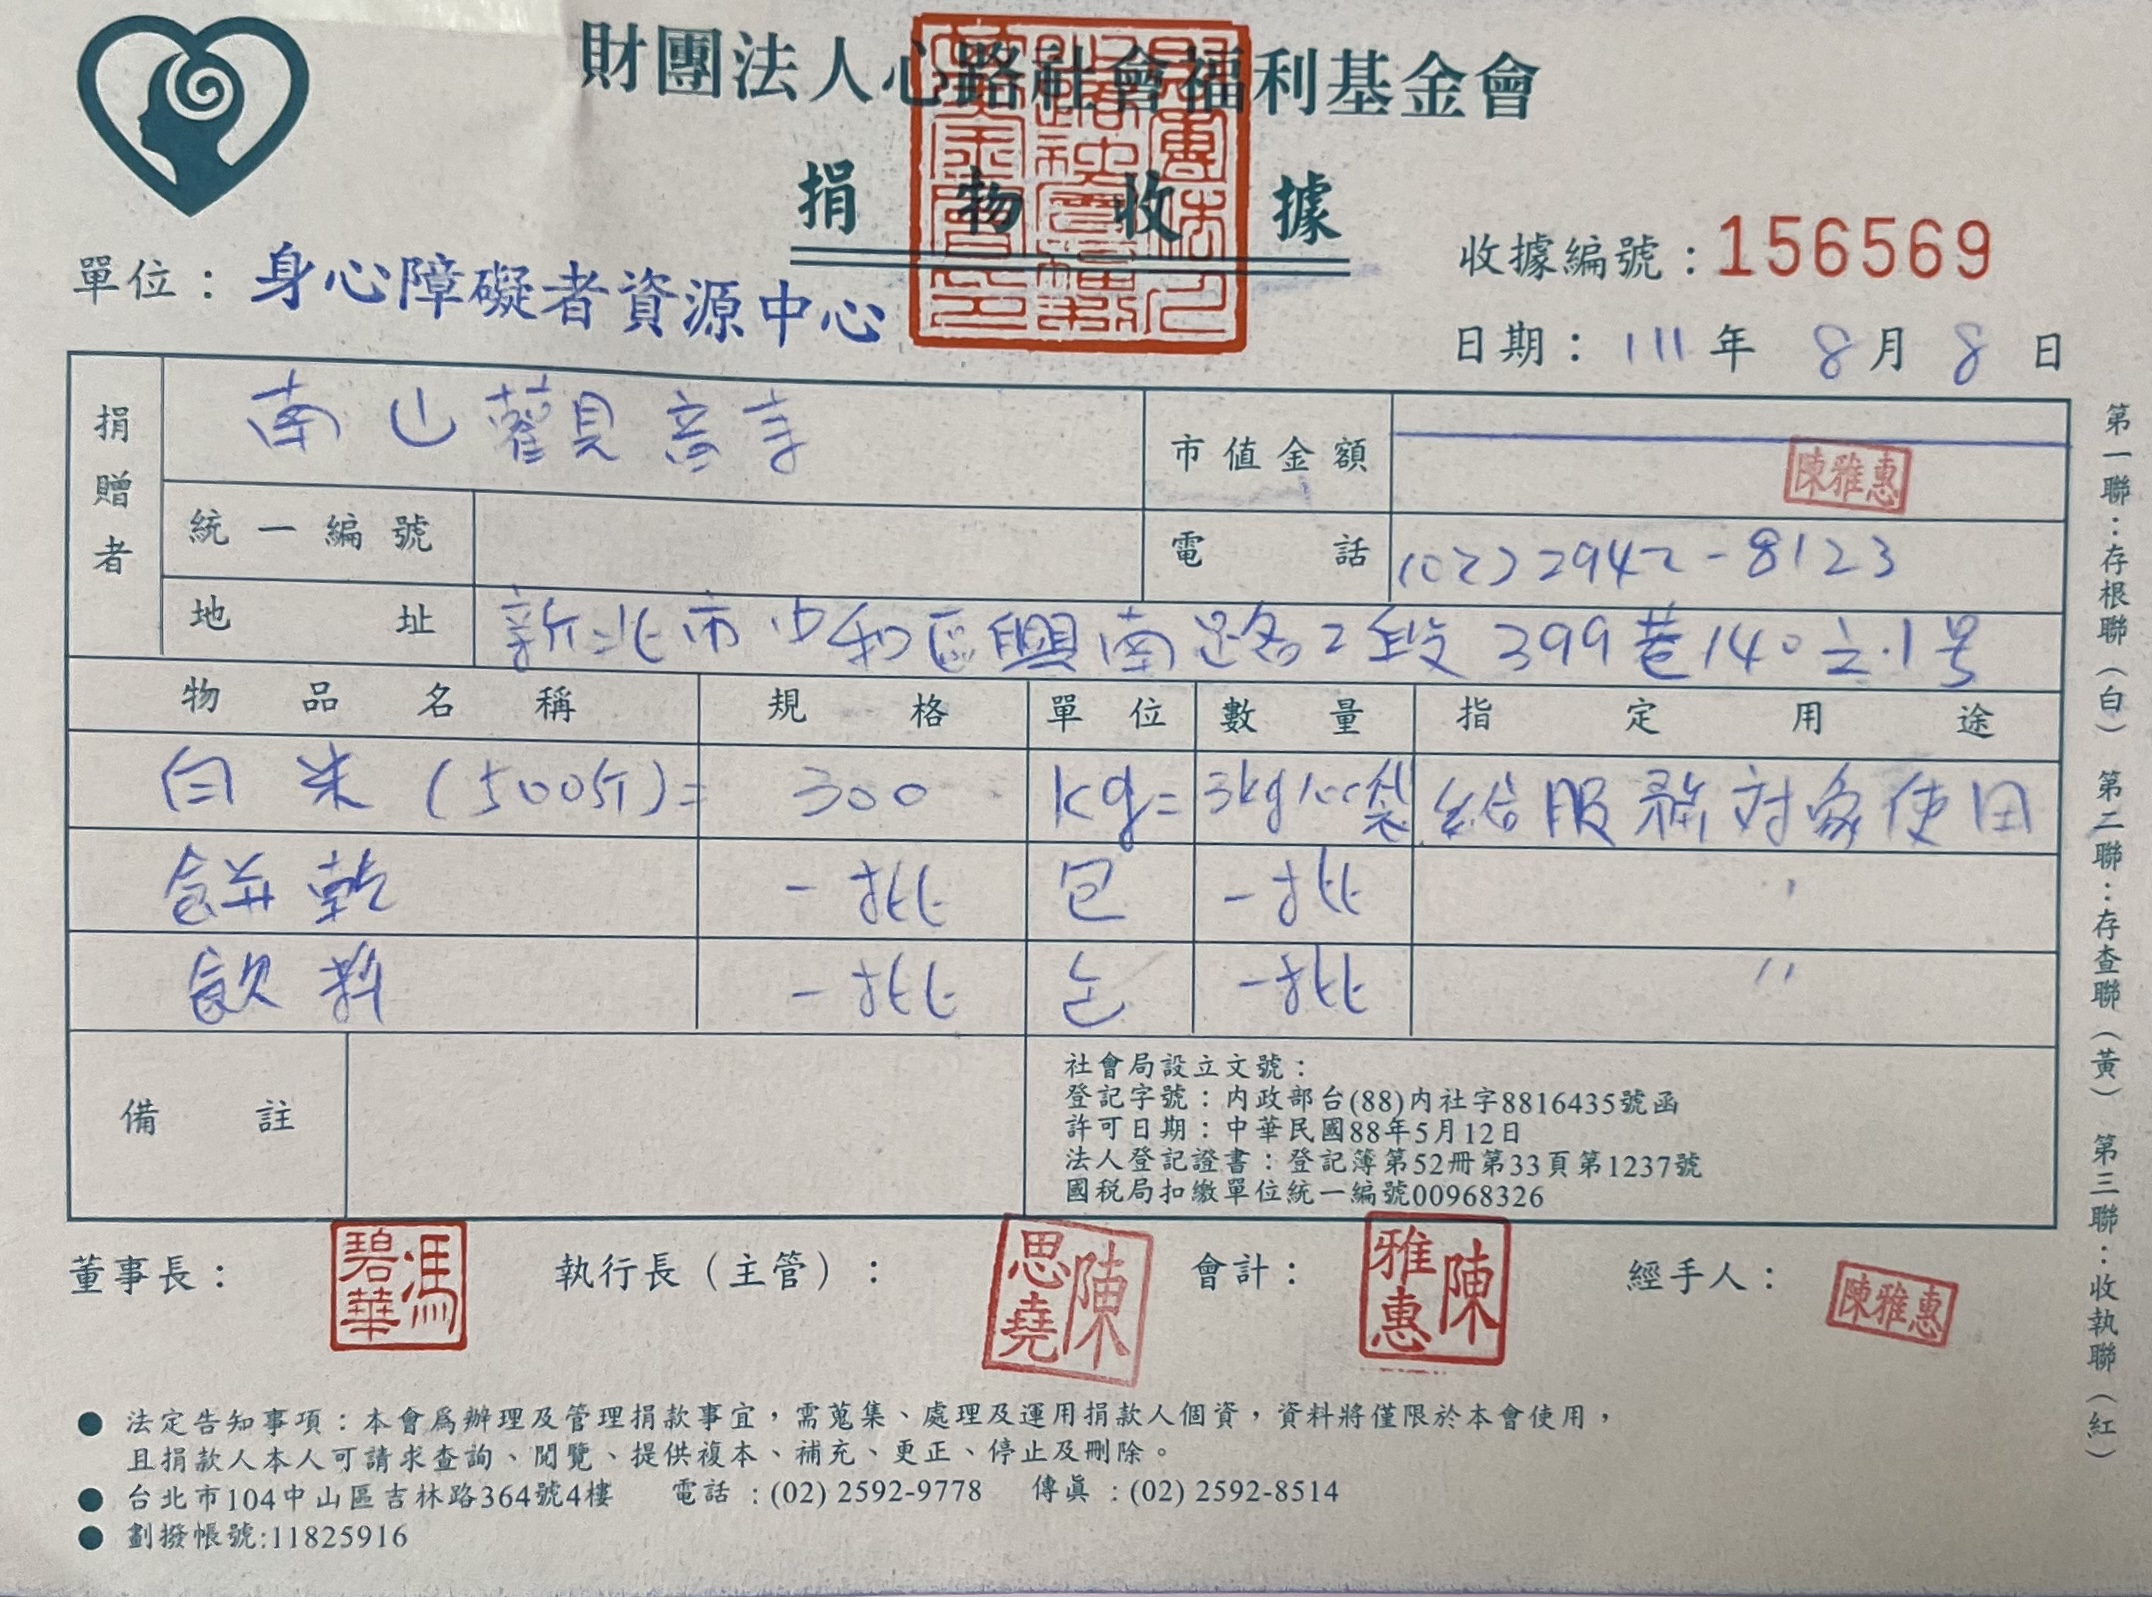 財團法人心路社會福利基金會
捐物收據
收據編號：156569
單位：身心障礙者資源中心
日期：111年8月8日
捐贈者 南山觀音寺 市值金額
陳雅惠
統一編號 電話 (02)2942-8123
地址 新北市中和區興南路2段399巷140之1号
物品名稱 規格 單位 數量 指定用途
白米(500斤)= 300 kg= 3kg100袋 給服務対象使用
餅乾 一批 包 一批 〃
飲料 一批 包 一批 〃
備註
社會局設立文號：
登記字號：內政部台(88)內社字8816435號函
許可日期：中華民國88年5月12日
法人登記證書：登記簿第52冊第33頁第1237號
國稅局扣繳單位統一編號00968326
董事長：馮碧華 執行長（主管）：陳思堯 會計：陳雅惠 經手人：陳雅惠
●法定告知事項：本會為辦理及管理捐款事宜，需蒐集、處理及運用捐款人個資，資料將僅限於本會使用，
且捐款人本人可請求查詢、閱覽、提供複本、補充、更正、停止及刪除。
●台北市104中山區吉林路364號4樓 電話：(02) 2592-9778 傳真：(02) 2592-8514
●劃撥帳號:11825916
第一聯：存根聯（白） 第二聯：存查聯（黃） 第三聯：收執聯（紅）